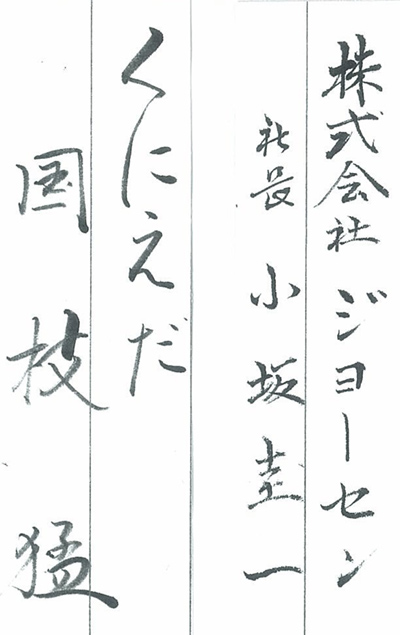 株式会社 ジヨーセン
社長 小坂圭一
くにえだ
国枝 猛